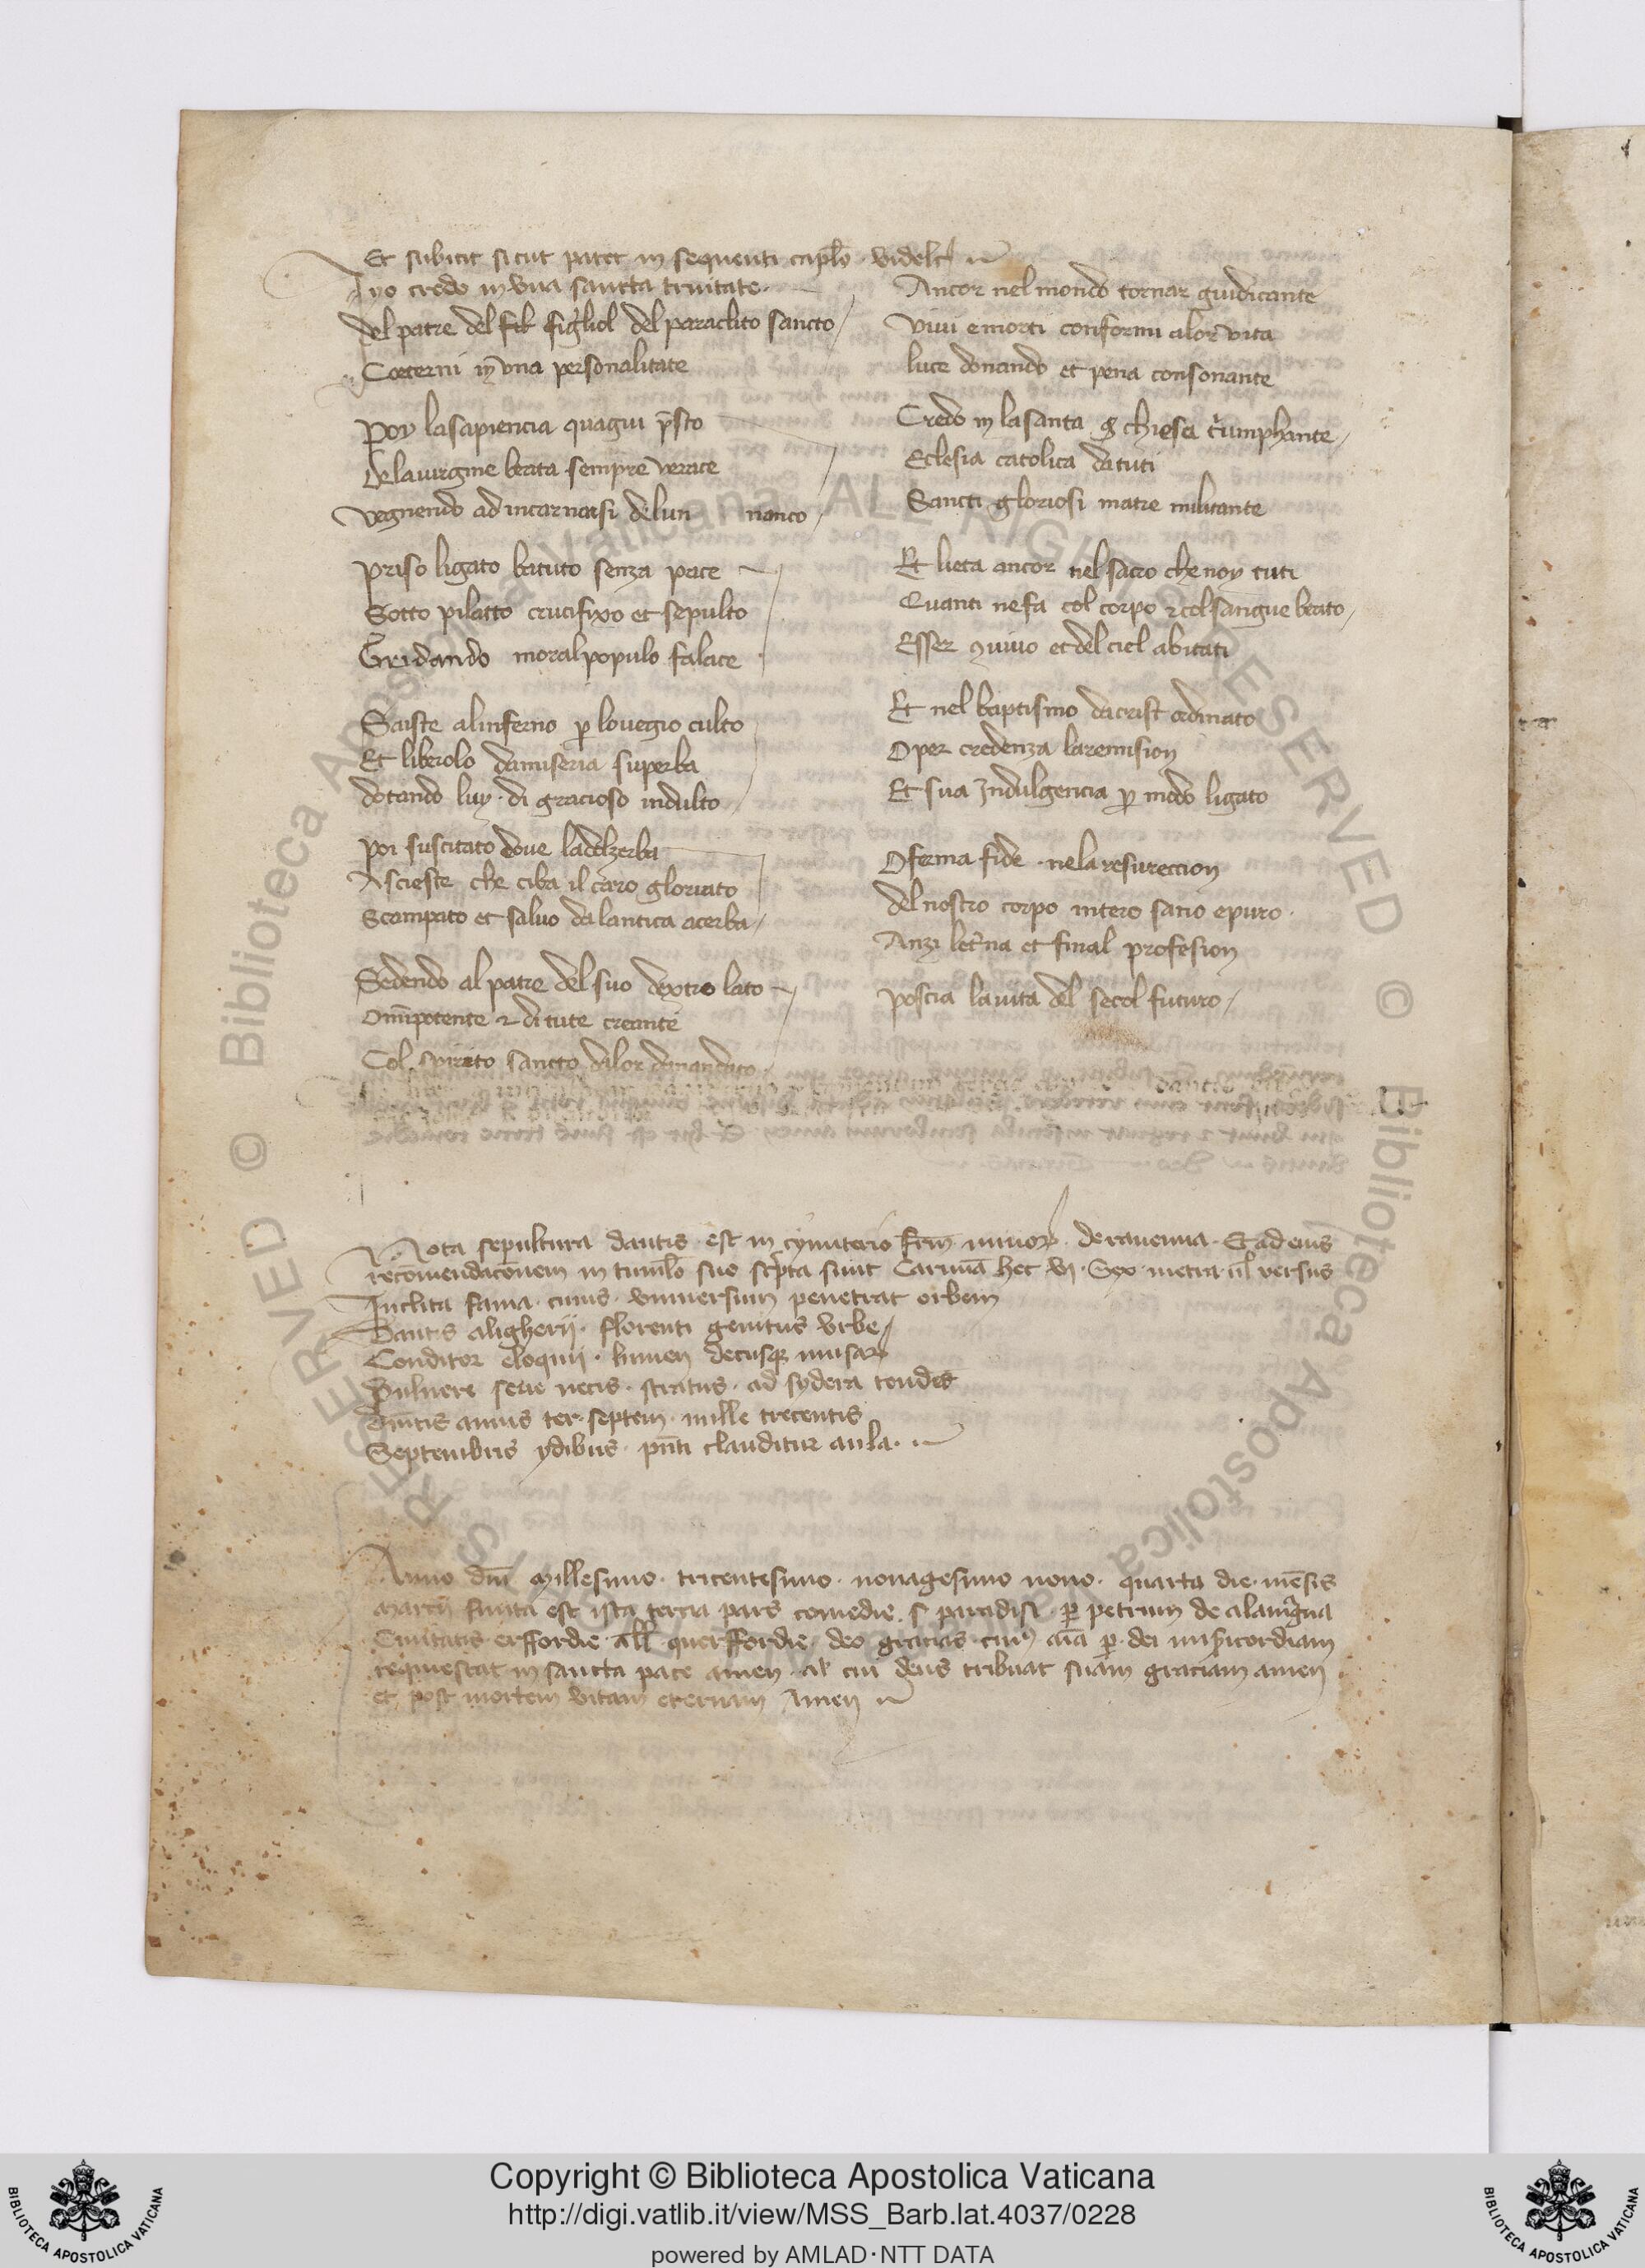 Et subicit sicut patet in sequenti capło videlcʒ
Iyo credo in vna sancta trinitate
del patre del figliol del paraclito sancto
Coeterni in vna personalitate
Poy la sapiencia quagui p̄sto
de lauirgine beata sempre verace
vegnendo ad incarnarsi delun nanco
Priso ligato batuto senza pace
Sotto pilatto crucifixo et sepulto
Gridando moral populo falace
Saiste al inferno p louegio culto
Et liberolo damiseria superba
dotando luy di gracioso indulto
Poi suscitato doue ladelzerba
Ascieste che ciba il caro gloriato
Scampato et saluo dalantica acerba
Sedendo al patre del suo dextro lato
Omīpotente et di tute creante
Col spirito sancto dalor demandato
Ancor nel mondo tornar giudicante
viui e morti conformi alor vita
luce donando et pena consonante
Credo in lasanta g chiesa triumphante
Eclesia catolica datuti
Sancti gloriosi matre militante
Et lieta ancor nel sacro che noy tuti
Quanti nefa col corpo et col sangue beato
Esser 9uiuo et del ciel abitati
Et nel baptismo da crist ordinato
O per credenza laremision
Et sua Indulgencia p modo ligato
O ferma fide nela resureccion
del nostro corpo intero sano e puro
Anzi let̄na et final profesion
poscia la uita del secol futuro
Nota sepultura dantis est in cymiterio frm̄ minoꝝ de rauenna Et ad eius
recomendacōnem in tumlo suo scpta sunt Carmīa hec vj Sex metra ul versus
Inclita fama cuius vniuersum penetrat orbem
Dantes aligherij florenti genitus vrbe
Conditor eloquij lumen decusqꝫ musaꝝ
Vulnere seue necis stratus ad sydera tendes
Dn̄icis annis ter septem mille trecentis
Septembris ydibus pn̄ti clauditur aula
Anno dm̄ Millesimo tricentesimo nonagesimo nono quarta die mēsis
marcij finita est ista tercia pars comedie s paradisi p petrum de alamgna
Ciuitatis erffordie all querffordie deo gracias cuiꝰ aīa p dei misicordiam
requiescat in sancta pace amen cui deus tribuat suam graciam amen
et post mortem vitam eternam Amen
Copyright © Biblioteca Apostolica Vaticana
http://digi.vatlib.it/view/MSS_Barb.lat.4037/0228
powered by AMLAD·NTT DATA
BIBLIOTECA APOSTOLICA VATICANA
BIBLIOTECA APOSTOLICA VATICANA